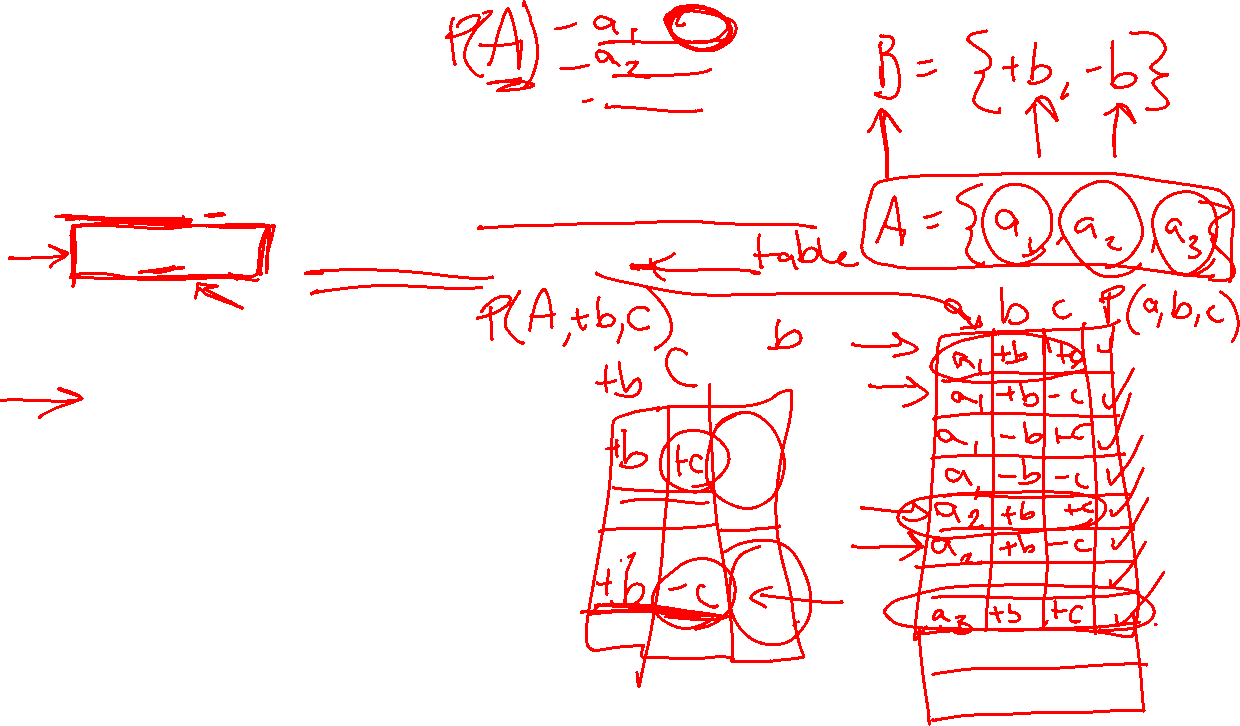 P(A) - a1
- a2
-
B = {+b, -b}
A = {a1, a2, a3}
table
P(A, +b, c)
b
+b c
+b +c
+b -c
b c P(a, b, c)
a1 +b +c ✓
a1 +b -c ✓
a1 -b +c ✓
a1 -b -c ✓
a2 +b +c ✓
a2 +b -c ✓
a3 +b +c ✓